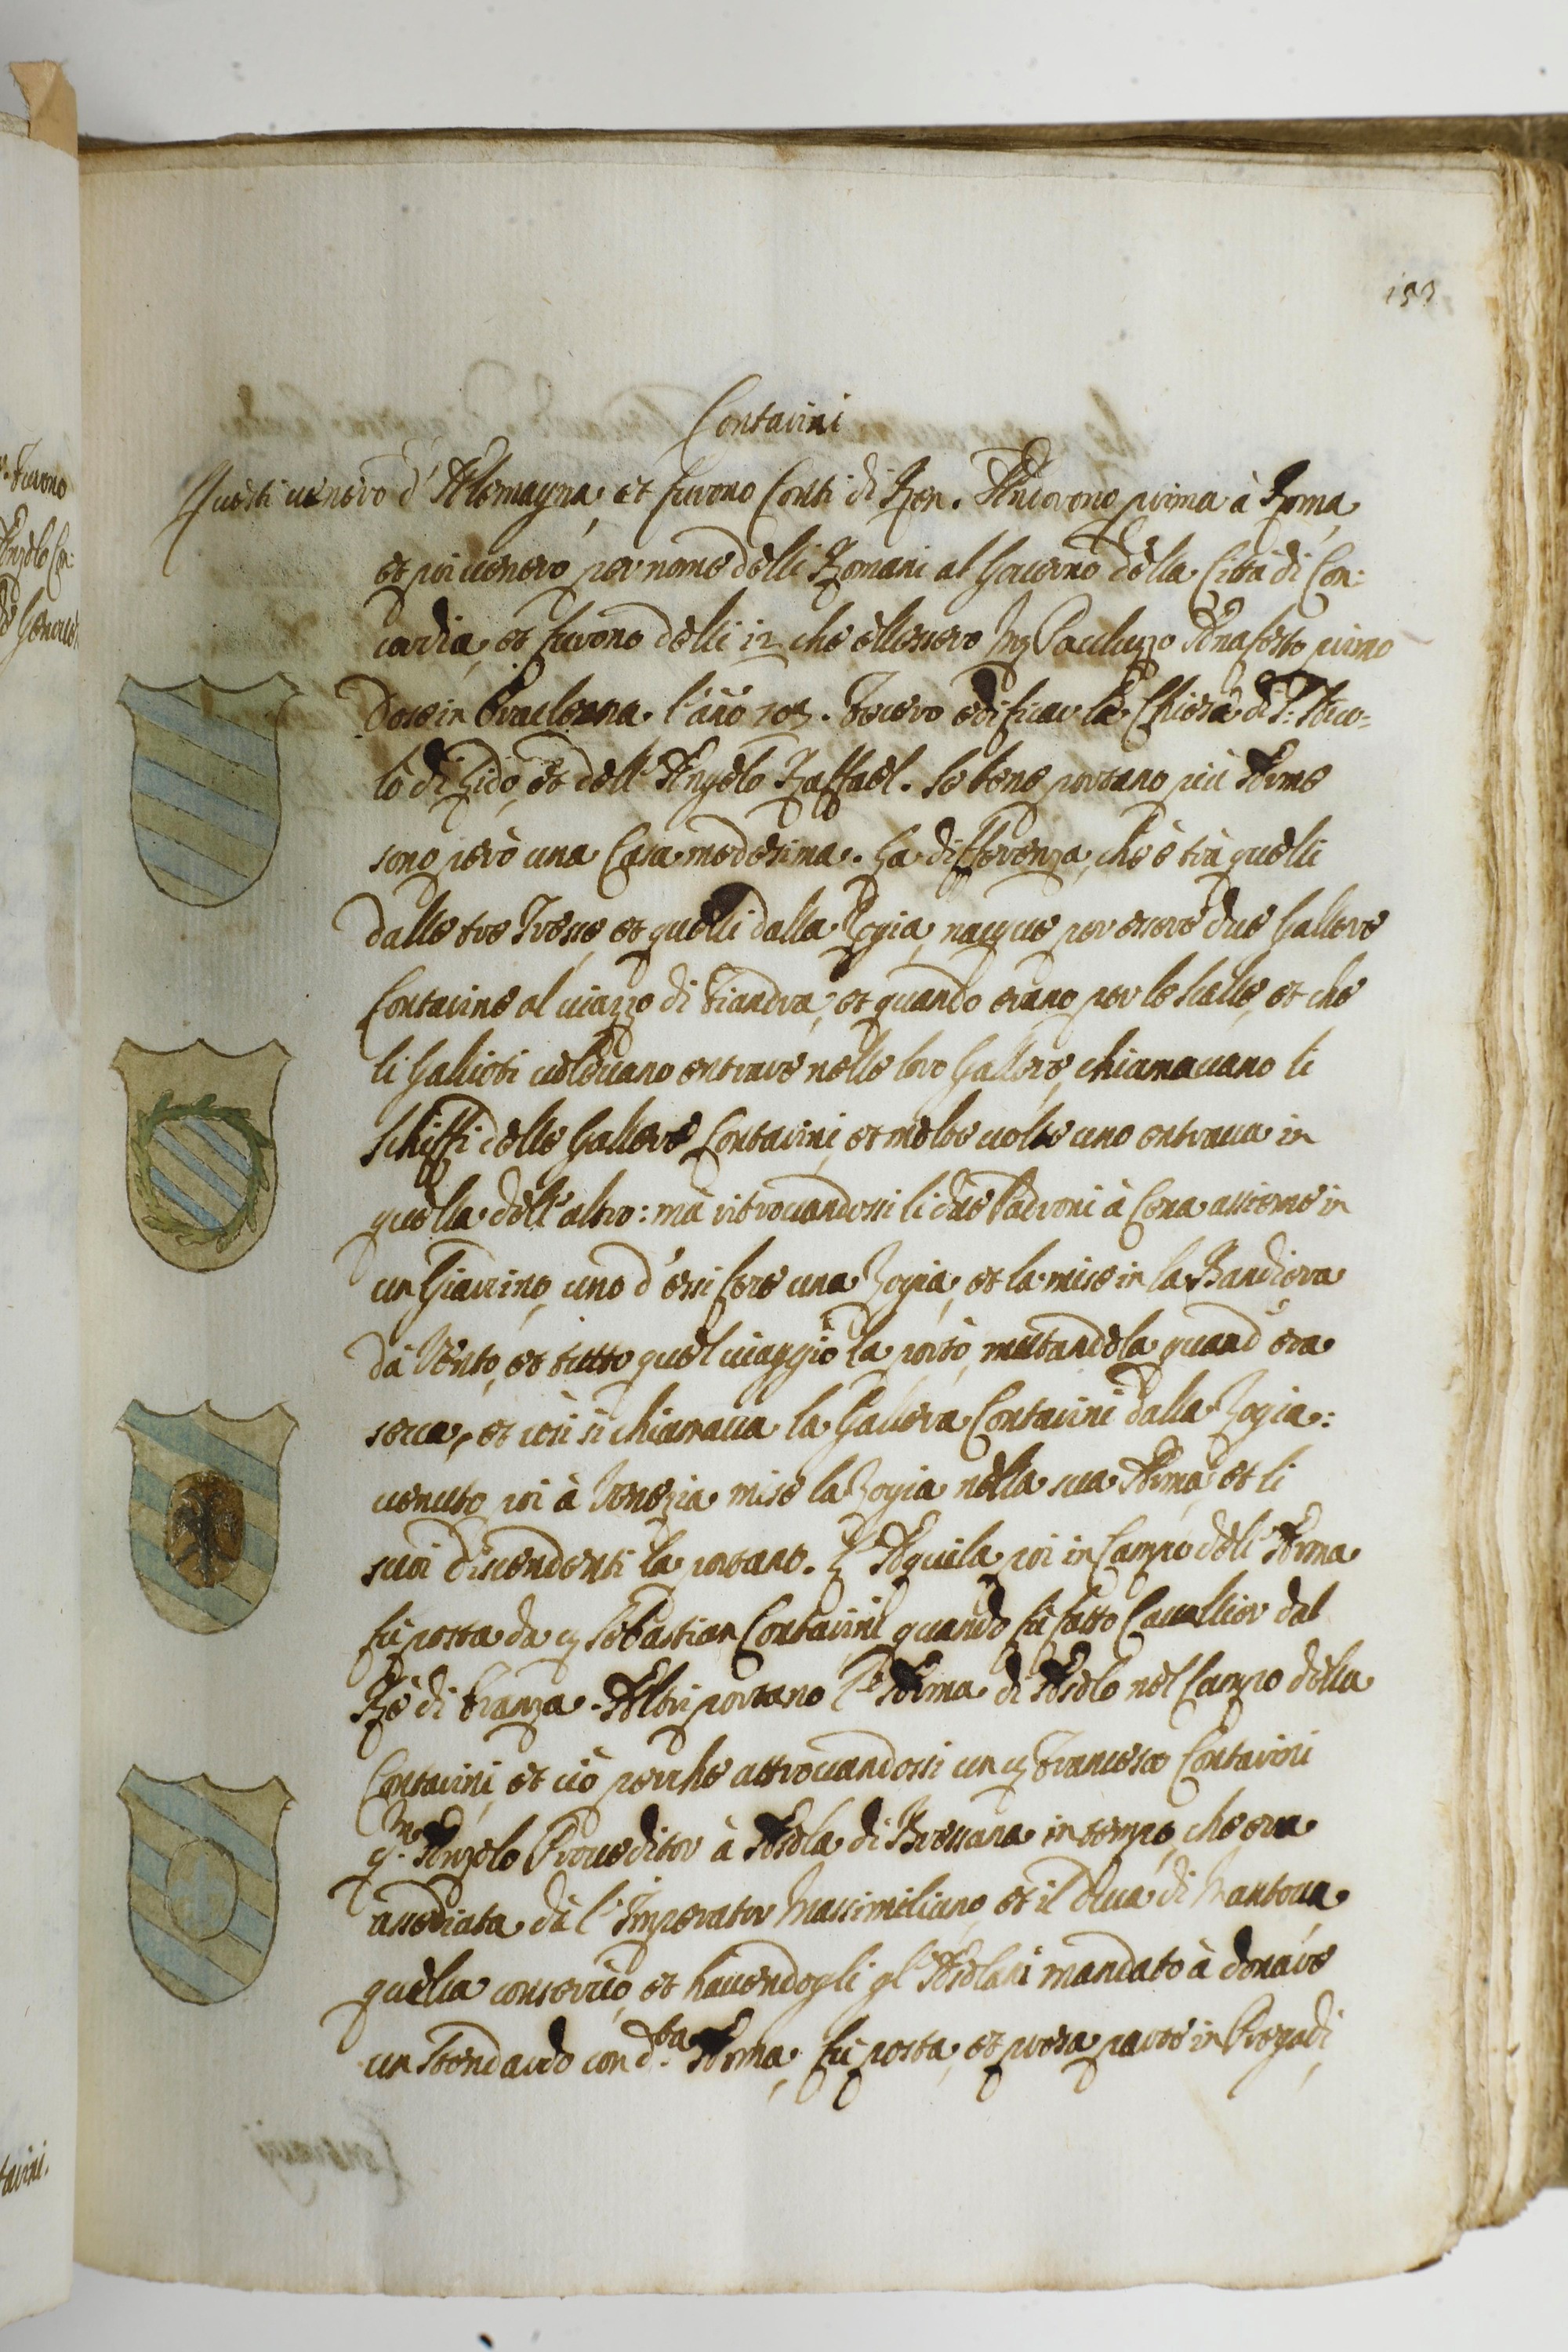 153
Contarini
Questi venero d'Alemagna, et furono Conti di Ren. Andorono prima à Roma,
et poi venero per nome delli Romani al Governo della Città di Con:
cordia, et furono delli 12 che ellessero Paoluzzo Anafesto primo
Dose in Eraclea l'año Fecero edificar la Chiesa di S: Nico=
lò di Lido, et dell'Angelo Raffael. Se bene portano più Arme
sono però una Casa medesima. La differenza, che è trà quelli
dalle tre Tresse, et quelli dalla Zogia, nacque per essere due Gallere
Contarine al viazzo di Fiandra, et quando erano per le scalle, et che
li Gallioti volevano entrare nelle loro Gallere, chiamavano li
schiffi delle Gallere Contarini, et molte volte uno entrava in
quella dell'altro: mà ritrovandossi li due Padroni à Cena assieme in
un Giardino, uno d'essi fece una Zogia, et la mise in la Bandiera
dà Vento, et tutto quel viaggio la portò, mutandola quand'era
secca, et così si chiamava la Gallera Contarini dalla Zogia:
venuto poi à Venezia mise la Zogia nella sua Arma, et li
suoi discendenti la portano. L'Aquila poi in Campo dell'Arma
fù posta da Sebastian Contarini quando fù fatto Cavallier dal
Rè di Franza. Altri portano l'Arma di Asolo nel Campo della
Contarini, et ciò perche attrovandossi un Francesco Contarini
q.m Anzolo Proveditor à Asola di Bressana in tempo, che era
assediata dà l'Imperator Massimiliano, et il Duca di Mantova
quella conservò, et havendogli gl'Asolani mandato à donare
un Stendardo con d.ta Arma, fù posta, et presa parte in Pregadi,